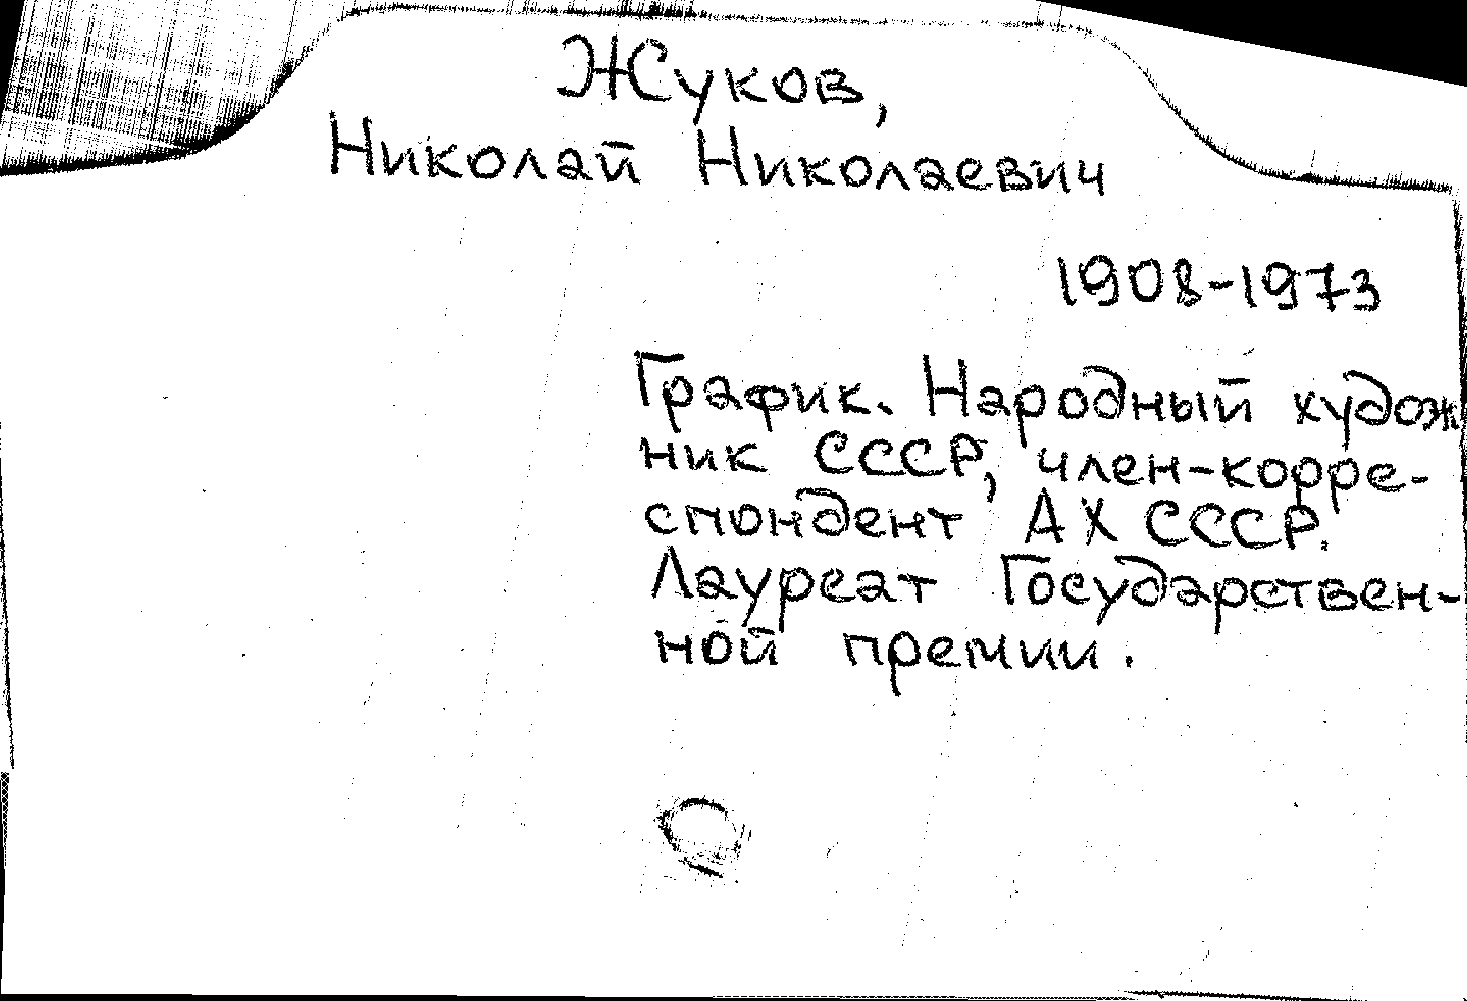 Жуков,
Николай Николаевич
1908-1973
График. Народный худож
ник СССР, член-корре-
спондент АХ СССР.
Лауреат Государствен-
ной премии.